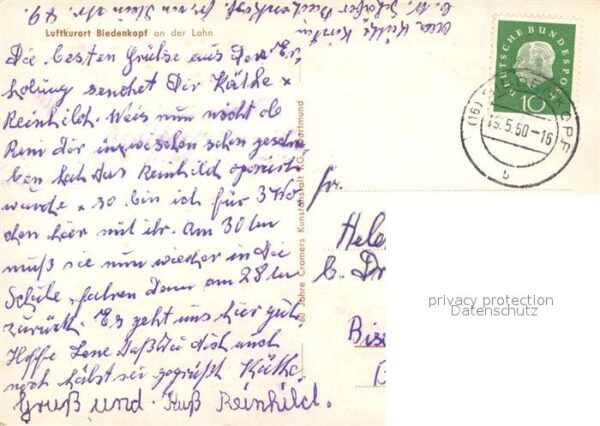 Luftkurort Biedenkopf an der Lahn
Die besten Grüße aus der Er-
holung sendet Dir Käthe u
Reinhild. Weis nun nicht ob
Reni dir inzwischen schon geschrie
ben hat das Reinhild operiert
wurde u. so bin ich für 3 Wo-
chen hier mit ihr. Am 30ten
muß sie nun wieder in die
Schule, fahren dann am 28ten
zurück. Es geht uns hier gut.
Hoffe Lene daß du dich auch
noch hälst sei gegrüßt Käthe.
Gruß und Kuß Reinhild.
60 Jahre Cramers Kunstanstalt KG, Dortmund
DEUTSCHE BUNDESPOST
10
(16)
KOPF
15.5.60-16
b
Fr.
Hele
b. Dr
Bis
privacy protection
Datenschutz